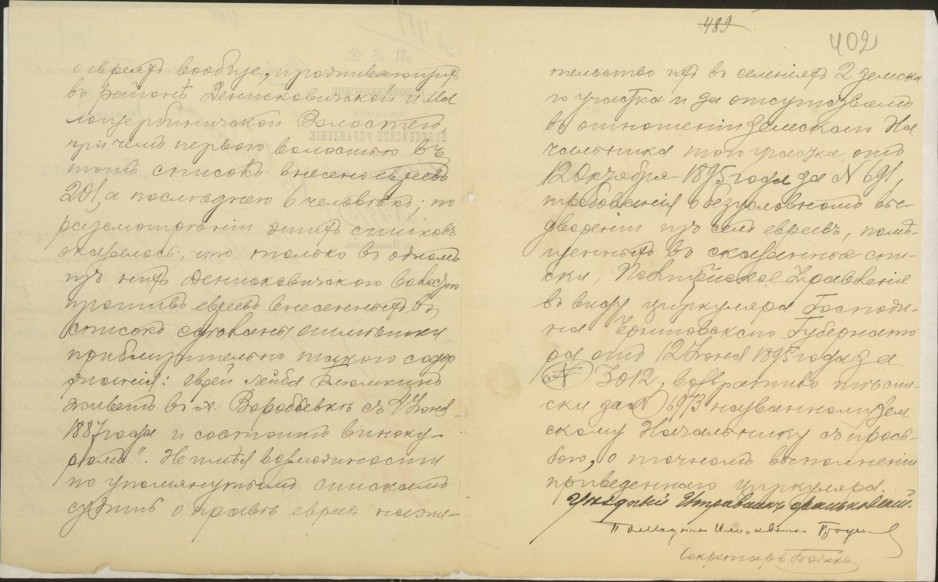 о евреяхъ вообще, проживающихъ
въ районѣ Денисковичской и Ма
лощербиничской Волостей
при чемъ первою волостью въ
тотъ списокъ внесено евреевъ
201, а последнею 6 человѣкъ; по
разсмотрении этихъ списковъ
оказалось, что только въ одномъ
изъ нихъ Денисковичской волости
противъ евреевъ внесенныхъ въ
списокъ сделаны отметки
приблизительно такого содер
жанія: еврей Лейба
живетъ въ х. Воробьевкѣ съ 1 Іюня
1887 года и состоитъ виноку
ромъ". Не имѣя возможности
по упомянутымъ спискамъ
судить о правѣ еврея на жи-
489
402
тельство ихъ въ селеніяхъ 2 земска
го участка и за отсутствіемъ
въ отношеніи Земскаго На
чальника того участка, отъ
12 Октября 1895 года за N 691,
требованія о безусловномъ вы
двореніи изъ селъ евреевъ, помѣ
щенныхъ въ сказанные спи
ски, Полицейское Управленіе
въ виду циркуляра Господи
на Черниговскаго Губернато
ра отъ 12 Іюня 1895 года за
N 3012, возвратило тѣ спи
ски за N 6973 названному Зем
скому Начальнику съ прось
бою, о точномъ выполненіи
приведеннаго циркуляра.
Уѣздный Исправникъ
Секретарь